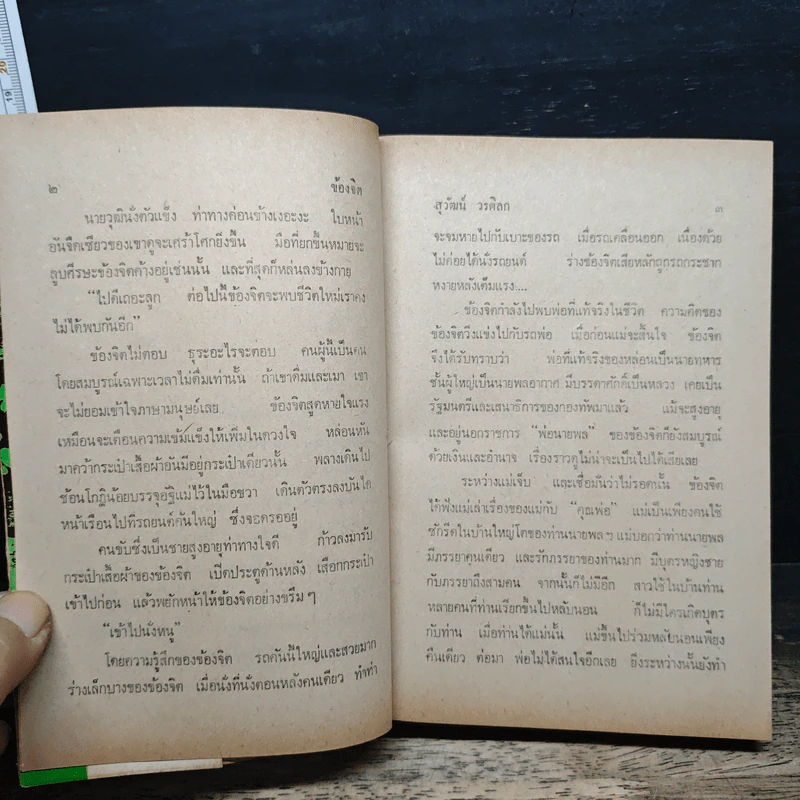 20
19
๒ ข้องจิต
นายวุฒินั่งตัวแข็ง ท่าทางค่อนข้างเงอะงะ ใบหน้า
อันจืดเซียวของเขาดูจะเศร้าโศกยิ่งขึ้น มือที่ยกขึ้นหมายจะ
ลูบศีรษะข้องจิตค้างอยู่เช่นนั้น และที่สุดก็หล่นลงข้างกาย
"ไปดีเถอะลูก ต่อไปนี้ข้องจิตจะพบชีวิตใหม่เราคง
ไม่ได้พบกันอีก"
ข้องจิตไม่ตอบ ธุระอะไรจะตอบ คนผู้นี้เป็นคน
โดยสมบูรณ์เฉพาะเวลาไม่ดื่มเท่านั้น ถ้าเขาดื่มและเมา เขา
จะไม่ยอมเข้าใจภาษามนุษย์เลย ข้องจิตสูดหายใจแรง
เหมือนจะเตือนความเข้มแข็งให้เพิ่มในดวงใจ หล่อนหัน
มาคว้ากระเป๋าเสื้อผ้าอันมีอยู่กระเป๋าเดียวนั้น พลางเดินไป
ช้อนโกฏิน้อยบรรจุอัฐิแม่ไว้ในมือขวา เดินตัวตรงลงบันได
หน้าเรือนไปที่รถยนต์คันใหญ่ ซึ่งจอดรออยู่
คนขับซึ่งเป็นชายสูงอายุท่าทางใจดี ก้าวลงมารับ
กระเป๋าเสื้อผ้าของข้องจิต เปิดประตูด้านหลัง เสือกกระเป๋า
เข้าไปก่อน แล้วพยักหน้าให้ข้องจิตอย่างขรึม ๆ
"เข้าไปนั่งหนู"
โดยความรู้สึกของข้องจิต รถคันนี้ใหญ่และสวยมาก
ร่างเล็กบางของข้องจิต เมื่อนั่งที่นั่งตอนหลังคนเดียว ทำท่า
สุวัฒน์ วรดิลก ๓
จะจมหายไปกับเบาะของรถ เมื่อรถเคลื่อนออก เนื่องด้วย
ไม่ค่อยได้นั่งรถยนต์ ร่างข้องจิตเสียหลักถูกรถกระชาก
หงายหลังเต็มแรง....
ข้องจิตกำลังไปพบพ่อที่แท้จริงในชีวิต ความคิดของ
ข้องจิตวิ่งแข่งไปกับรถพ่อ เมื่อก่อนแม่จะสิ้นใจ ข้องจิต
จึงได้รับทราบว่า พ่อที่แท้จริงของหล่อนเป็นนายทหาร
ชั้นผู้ใหญ่เป็นนายพลอากาศ มีบรรดาศักดิ์เป็นหลวง เคยเป็น
รัฐมนตรีและเสนาธิการของกองทัพมาแล้ว แม้จะสูงอายุ
และอยู่นอกราชการ "พ่อนายพล" ของข้องจิตก็ยังสมบูรณ์
ด้วยเงินและอำนาจ เรื่องราวดูไม่น่าจะเป็นไปได้เสียเลย
ระหว่างแม่เจ็บ และเชื่อมั่นว่าไม่รอดนั้น ข้องจิต
ได้ฟังแม่เล่าเรื่องของแม่กับ "คุณพ่อ" แม่เป็นเพียงคนใช้
ซักรีดในบ้านใหญ่โตของท่านนายพลฯ แม่บอกว่าท่านนายพล
มีภรรยาคนเดียว และรักภรรยาของท่านมาก มีบุตรหญิงชาย
กับภรรยาถึงสามคน จากนั้นก็ไม่มีอีก สาวใช้ในบ้านท่าน
หลายคนที่ท่านเรียกขึ้นไปหลับนอน ก็ไม่มีใครเกิดบุตร
กับท่าน เมื่อท่านได้แม่นั้น แม่ขึ้นไปร่วมหลับนอนเพียง
คืนเดียว ต่อมา พ่อไม่ได้สนใจอีกเลย ยิ่งระหว่างนั้นยังทำ